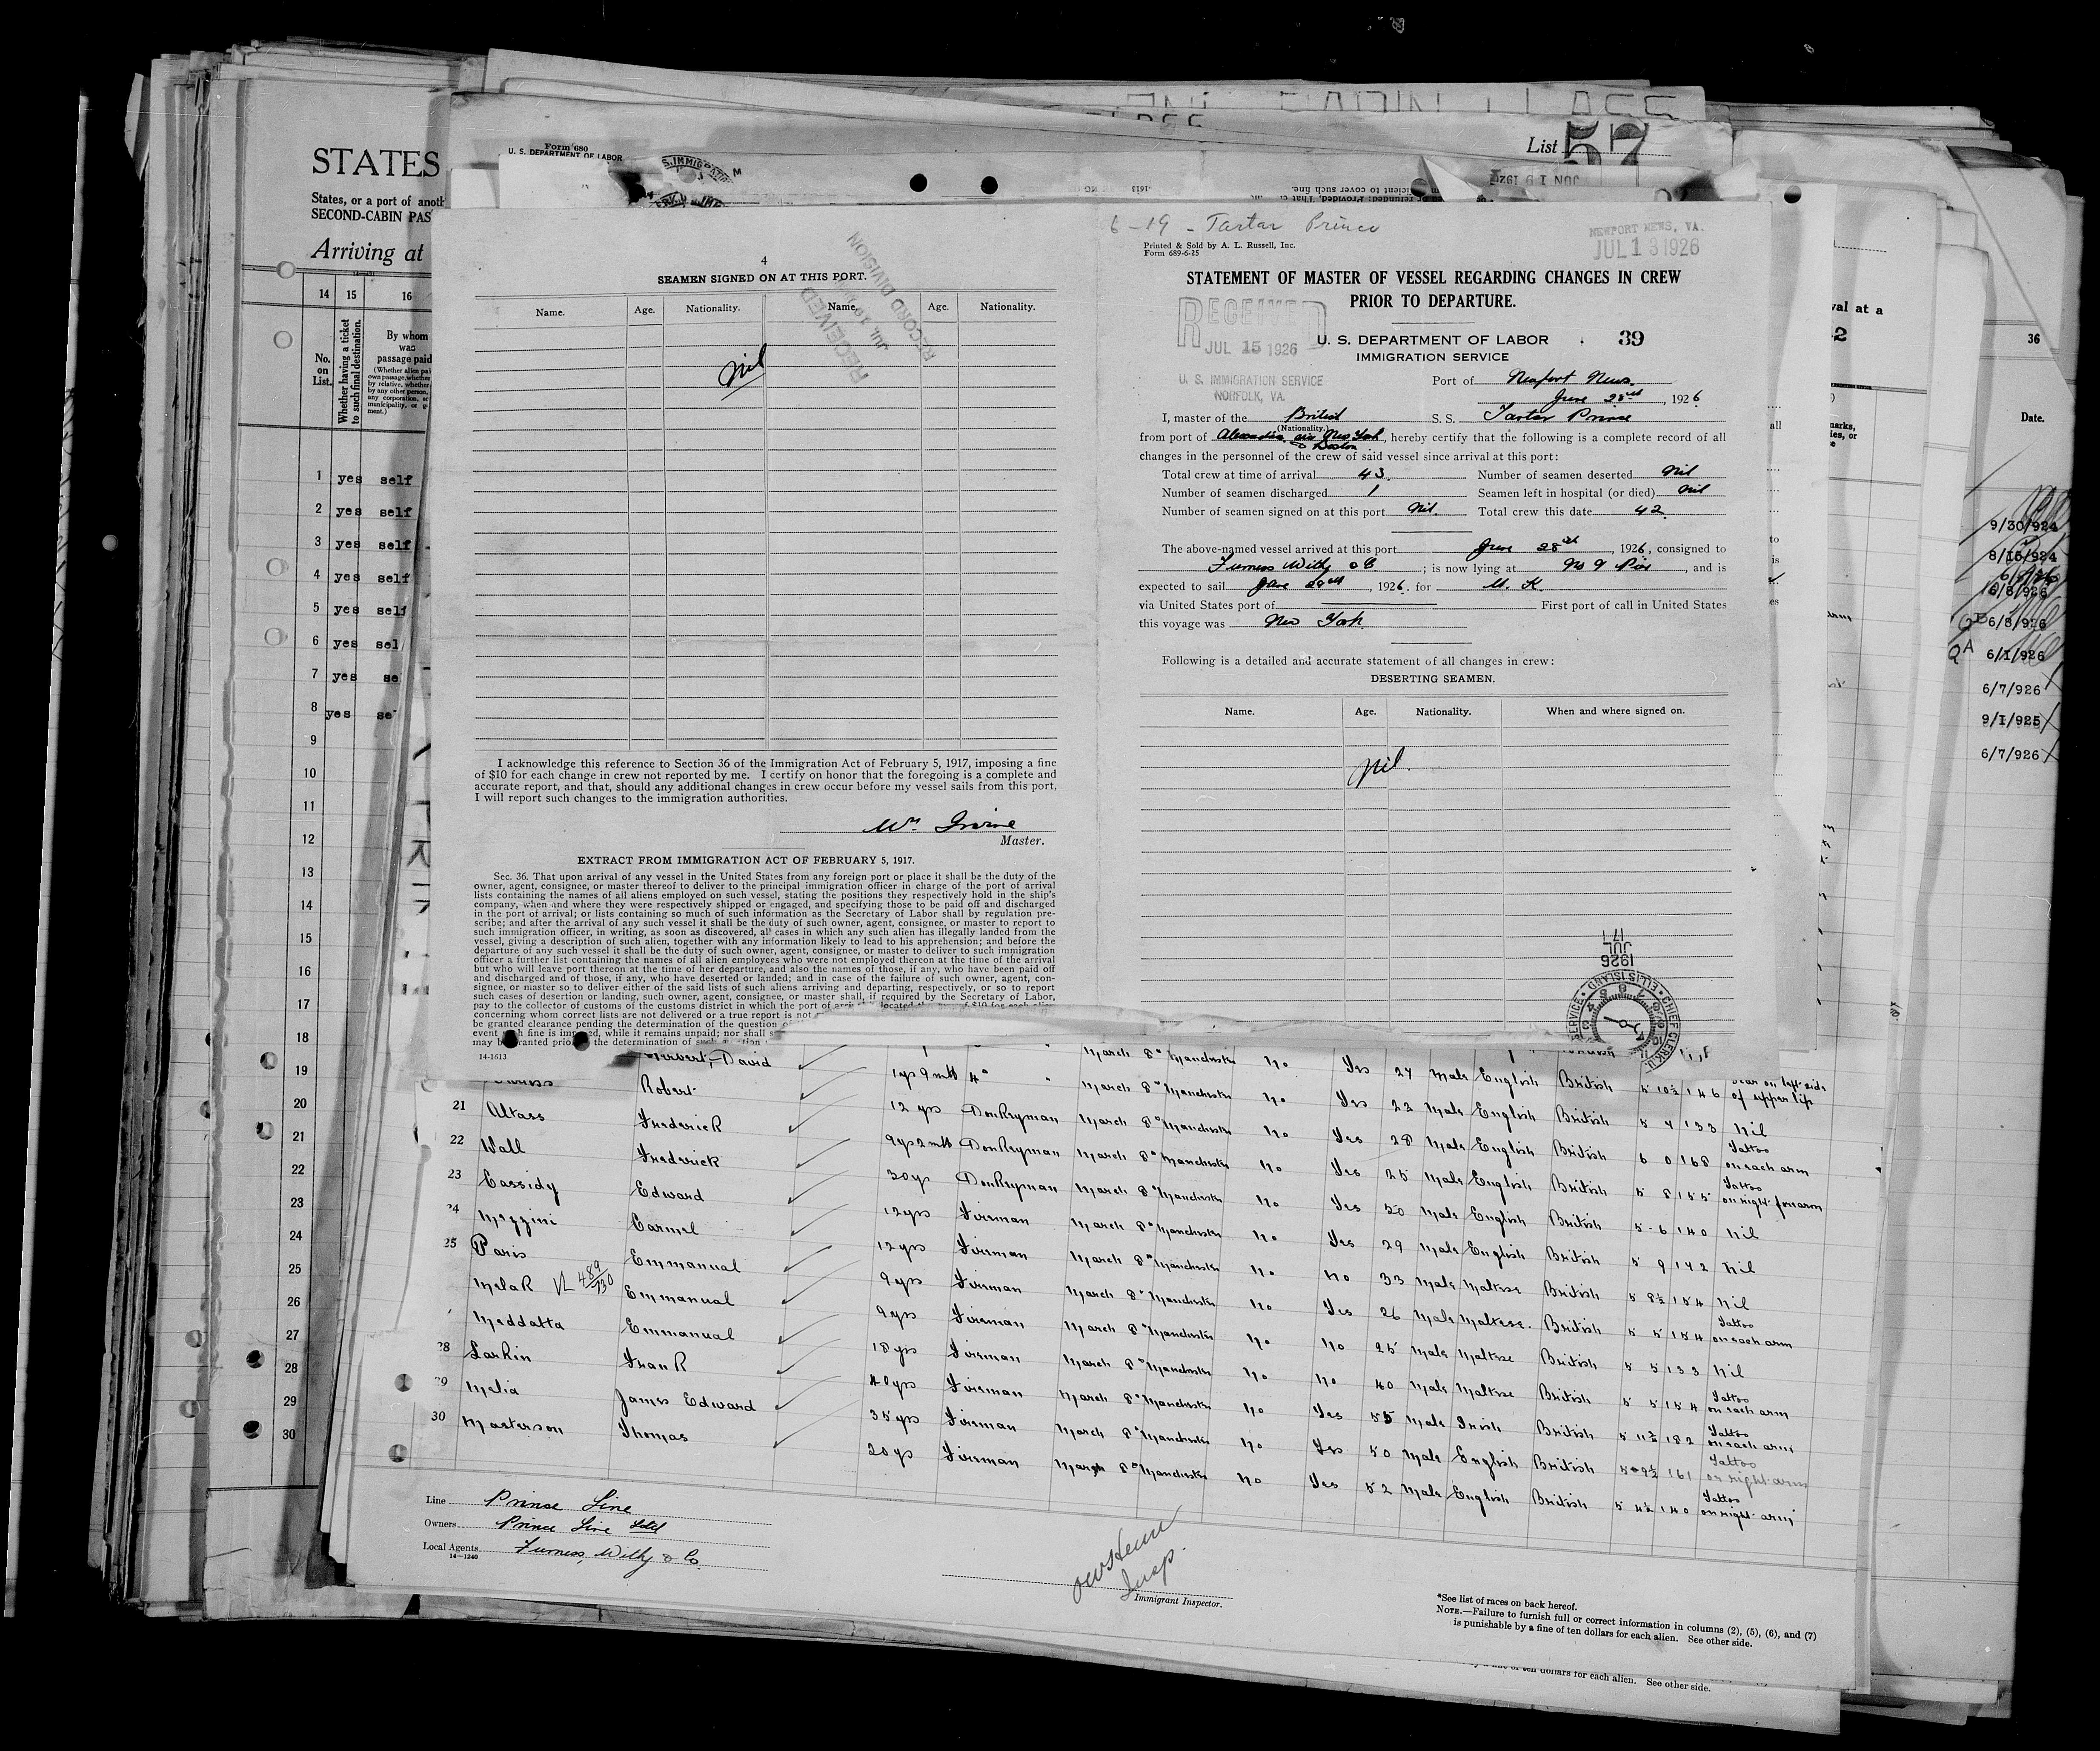 Form 680
U. S. DEPARTMENT OF LABOR
List 57
JUN 19 1926
STATES
States, or a port of anoth
SECOND-CABIN PAS
Arriving at
14 15 16
No. on List.
Whether having a ticket to such final destination.
By whom was passage paid
1 yes self
2 yes self
3 yes self
4 yes self
5 yes self
6 yes sel
7 yes se
8 yes se
9
10
11
12
13
14
15
16
17
18
19
20
21
22
23
24
25
26
27
28
29
30
4
SEAMEN SIGNED ON AT THIS PORT.
RECEIVED
RECORD DIVISION
Name. Age. Nationality. Name. Age. Nationality.
Nil
I acknowledge this reference to Section 36 of the Immigration Act of February 5, 1917, imposing a fine
of $10 for each change in crew not reported by me. I certify on honor that the foregoing is a complete and
accurate report, and that, should any additional changes in crew occur before my vessel sails from this port,
I will report such changes to the immigration authorities.
Wm Irvine
Master.
EXTRACT FROM IMMIGRATION ACT OF FEBRUARY 5, 1917.
Sec. 36. That upon arrival of any vessel in the United States from any foreign port or place it shall be the duty of the
owner, agent, consignee, or master thereof to deliver to the principal immigration officer in charge of the port of arrival
lists containing the names of all aliens employed on such vessel, stating the positions they respectively hold in the ship's
company, when and where they were respectively shipped or engaged, and specifying those to be paid off and discharged
in the port of arrival; or lists containing so much of such information as the Secretary of Labor shall by regulation pre-
scribe; and after the arrival of any such vessel it shall be the duty of such owner, agent, consignee, or master to report to
such immigration officer, in writing, as soon as discovered, all cases in which any such alien has illegally landed from the
vessel, giving a description of such alien, together with any information likely to lead to his apprehension; and before the
departure of any such vessel it shall be the duty of such owner, agent, consignee, or master to deliver to such immigration
officer a further list containing the names of all alien employees who were not employed thereon at the time of the arrival
but who will leave port thereon at the time of her departure, and also the names of those, if any, who have been paid off
and discharged and of those, if any, who have deserted or landed; and in case of the failure of such owner, agent, con-
signee, or master so to deliver either of the said lists of such aliens arriving and departing, respectively, or so to report
such cases of desertion or landing, such owner, agent, consignee, or master shall, if required by the Secretary of Labor,
pay to the collector of customs of the customs district in which the port of arrival is located
concerning whom correct lists are not delivered or a true report is not
be granted clearance pending the determination of the question
event such fine is imposed, while it remains unpaid; nor shall
may be granted prior to the determination of such question
14-1613
6-19 - Tartar Prince
NEWPORT NEWS, VA.
JUL 13 1926
Printed & Sold by A. L. Russell, Inc.
Form 689-6-25
STATEMENT OF MASTER OF VESSEL REGARDING CHANGES IN CREW
PRIOR TO DEPARTURE.
RECEIVED
JUL 15 1926
U. S. IMMIGRATION SERVICE
NORFOLK, VA.
U. S. DEPARTMENT OF LABOR 39
IMMIGRATION SERVICE
Port of Newport News.
June 28th, 1926
I, master of the British S. S. Tartar Prince
(Nationality.)
from port of Alexandria via New York & Boston, hereby certify that the following is a complete record of all
changes in the personnel of the crew of said vessel since arrival at this port:
Total crew at time of arrival 43. Number of seamen deserted Nil
Number of seamen discharged 1 Seamen left in hospital (or died) Nil
Number of seamen signed on at this port Nil. Total crew this date 42.
The above-named vessel arrived at this port June 28th, 1926, consigned to
Furness Withy & C.; is now lying at No 9 Pier, and is
expected to sail June 29th, 1926. for U. K.
via United States port of First port of call in United States
this voyage was New York.
Following is a detailed and accurate statement of all changes in crew:
DESERTING SEAMEN.
Name. Age. Nationality. When and where signed on.
Nil.
JUL 17 1926
ELLIS ISLAND CHIEF CLERK
val at a
36
Date.
9/30/924
8/15/924
6/8/926
6/8/926
QA 6/1/926
6/7/926
9/1/925
6/7/926
David March 8" Manchester No Yes 24 Male English British 5 10½ 146 Scar on left side of upper lip
Robert 1yr 9mth March 8" Manchester No Yes 22 Male English British 5 4 133 Nil
21 Altass Frederick 12 yrs Donkeyman March 8" Manchester No Yes 28 Male English British 6 0 168 Tattoo on each arm
22 Wall Frederick 9yr 2mth Donkeyman March 8" Manchester No Yes 25 Male English British 5 8 155 Tattoo on right forearm
23 Cassidy Edward 30yr Donkeyman March 8" Manchester No Yes 50 Male English British 5 6 140 Nil
24 Mezzini Carmel 12yrs Fireman March 8" Manchester No Yes 29 Male English British 5 9 142 Nil
25 Paris Emmanual 12yrs Fireman March 8" Manchester No No 33 Male Maltese British 5 8½ 154 Nil
Melak VL 489/730 Emmanual 9yrs Fireman March 8" Manchester No Yes 26 Male Maltese. British 5 5 154 Tattoo on each arm
Meddatta Emmanual 9yrs Fireman March 8" Manchester No No 25 Male Maltese British 5 5 133 Nil
28 Larkin Frank 18yrs Fireman March 8" Manchester No No 40 Male Maltese British 5 5 154 Tattoo on each arm
29 Melia James Edward 40yrs Fireman March 8" Manchester No Yes 55 Male Irish British 5 11½ 182 Tattoo on each arm
30 Masterson Thomas 35yrs Fireman March 8" Manchester No Yes 50 Male English British 5 9½ 161 Tattoo on right arm
20 yrs Fireman March 8" Manchester No Yes 52 Male English British 5 4½ 140 Tattoo on right arm
Line Prince Line
Owners Prince Line Ltd
Local Agents Furness, Withy & Co.
14-1240
Insp.
Immigrant Inspector.
*See list of races on back hereof.
NOTE.—Failure to furnish full or correct information in columns (2), (5), (6), and (7)
is punishable by a fine of ten dollars for each alien. See other side.
dollars for each alien. See other side.